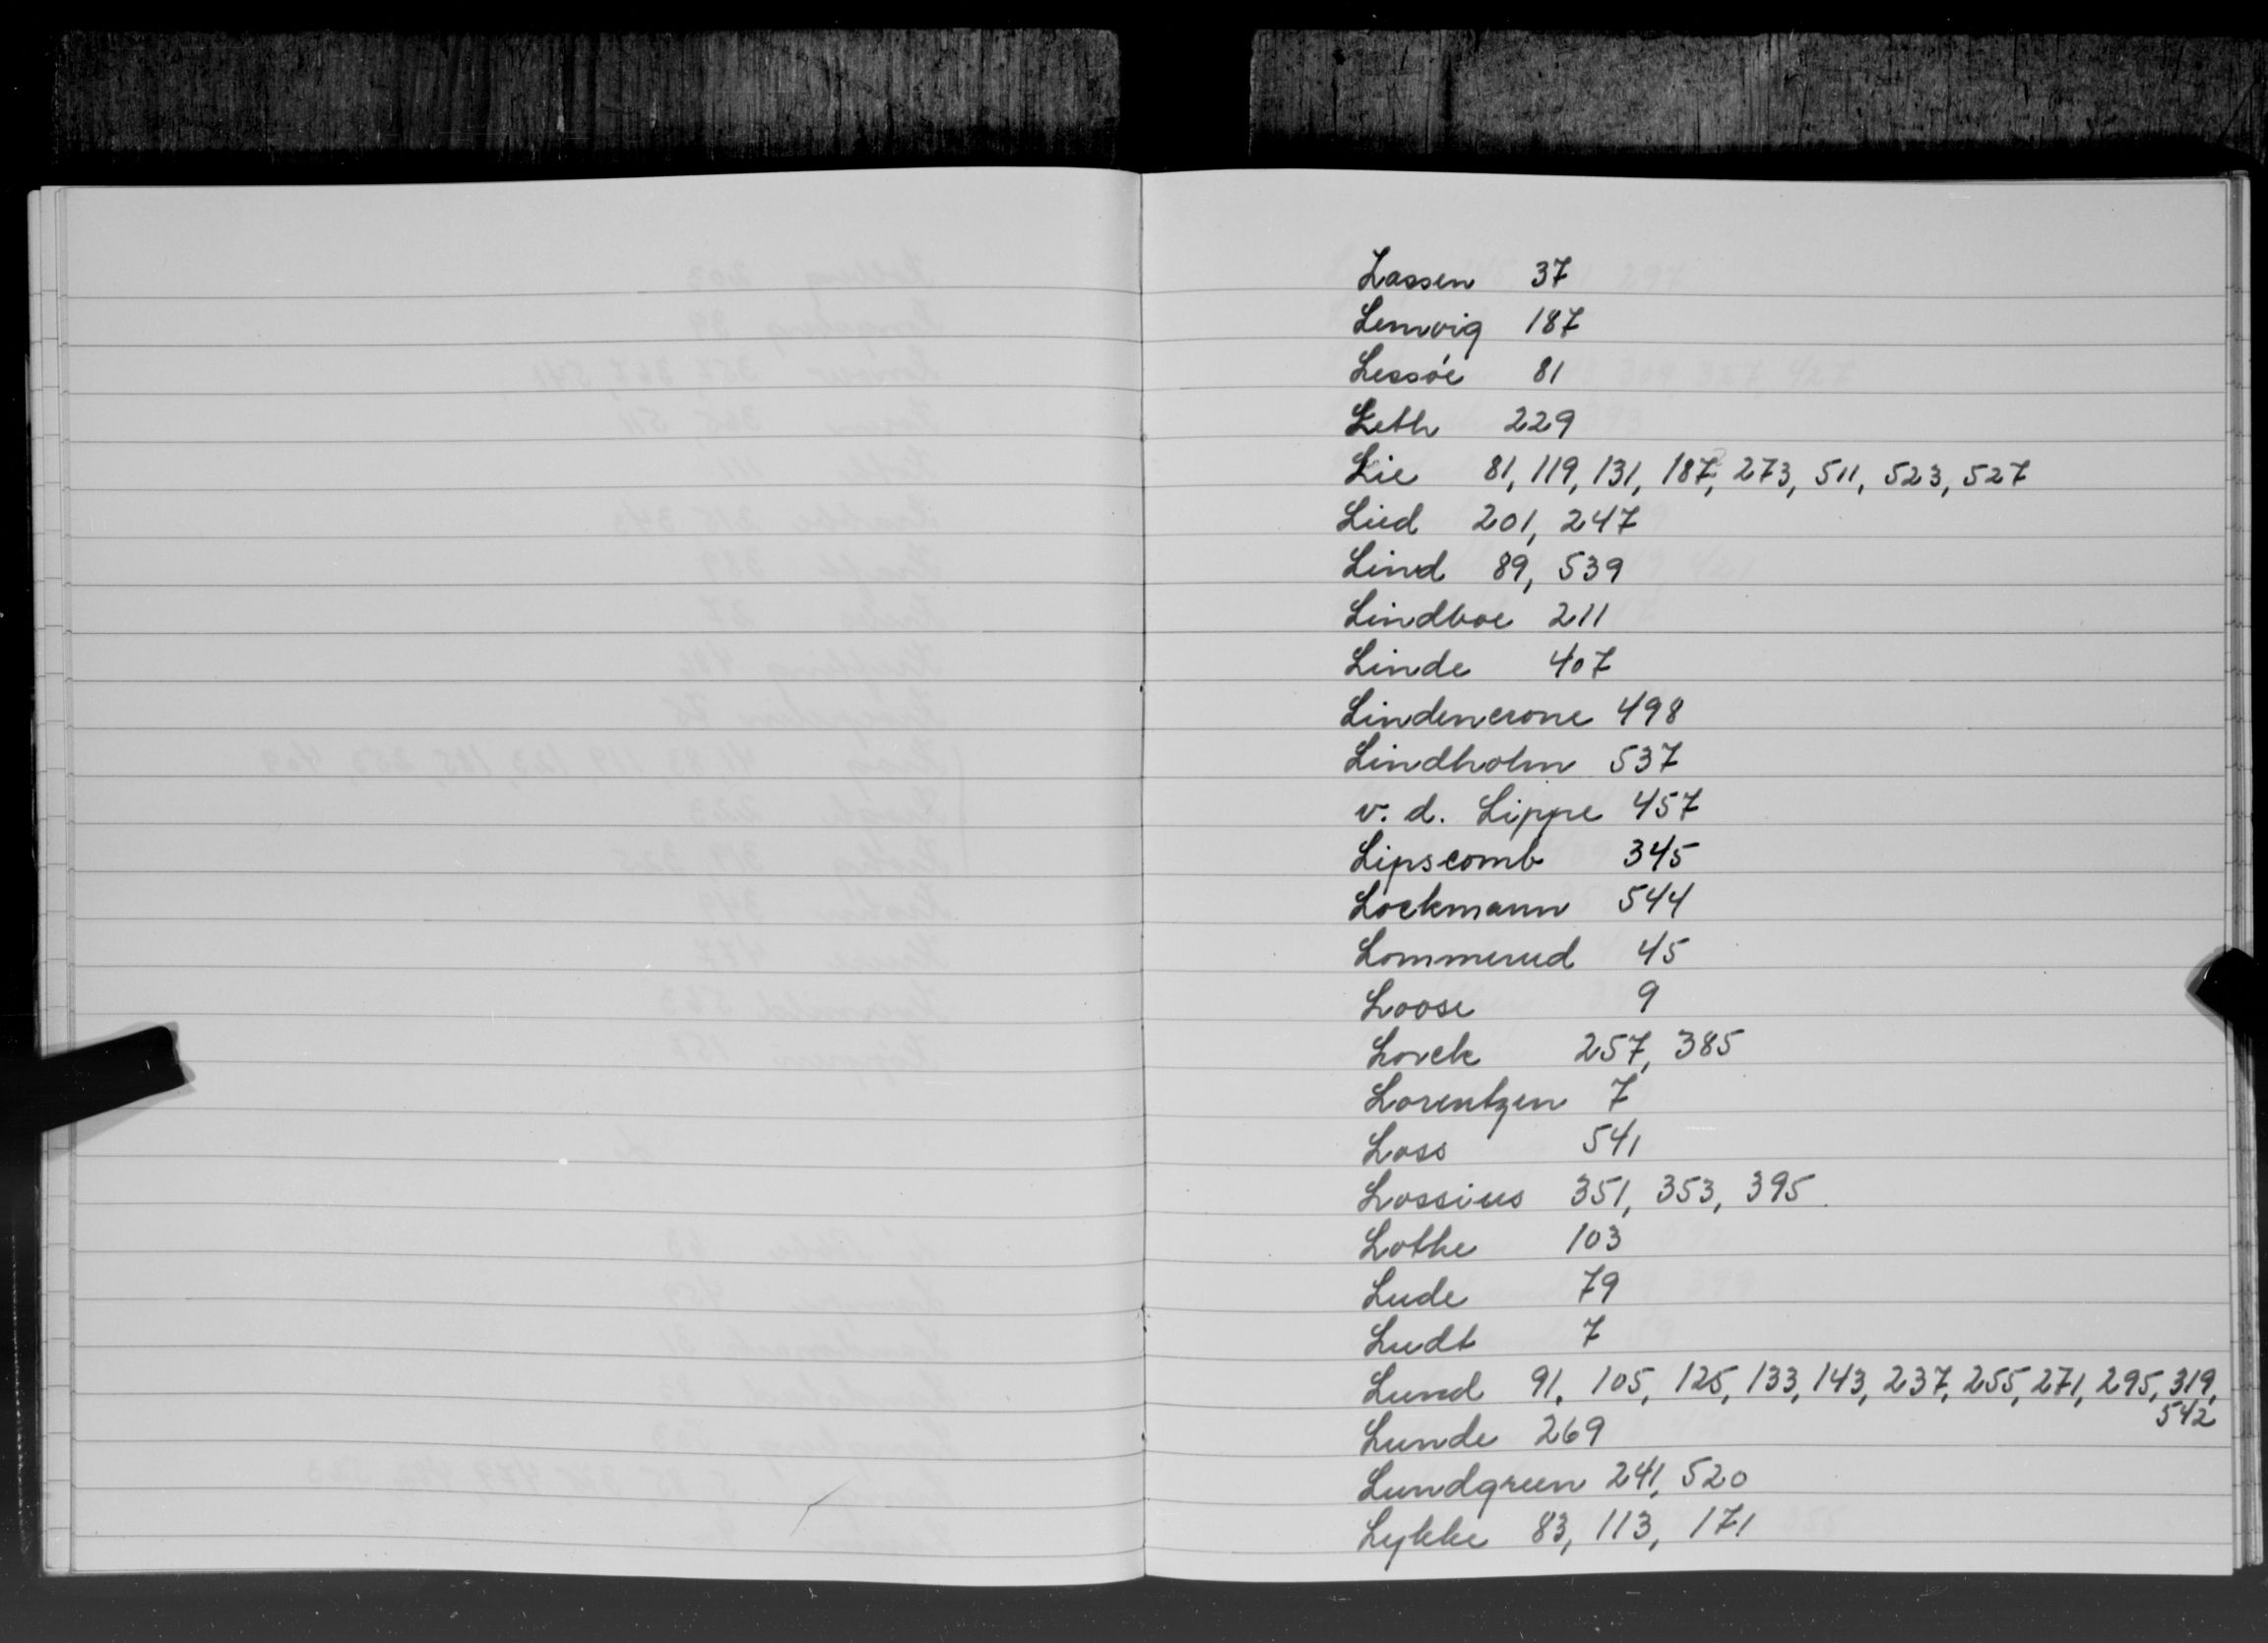 Lassen 37
Lemvig 187
Lessóe 81
Leth 229
Lie 81, 119, 131, 187, 273, 511, 523, 527
Lied 201, 247
Lind 89, 539
Lindboe 211
Linde 407
Lindencrone 498
Lindholm 537
v. d. Lippe 457
Lipscomb 345
Lockmann 544
Lommerud 45
Loose 9
Lorck 257, 385
Lorentzen 7
Loss 541
Lossius 351, 353, 395
Lothe 103
Lude 79
Ludt 7
Lund 91, 105, 125, 133, 143, 237, 255, 271, 295, 319,
542
Lunde 269
Lundgreen 241, 520
Lykke 83, 113, 171